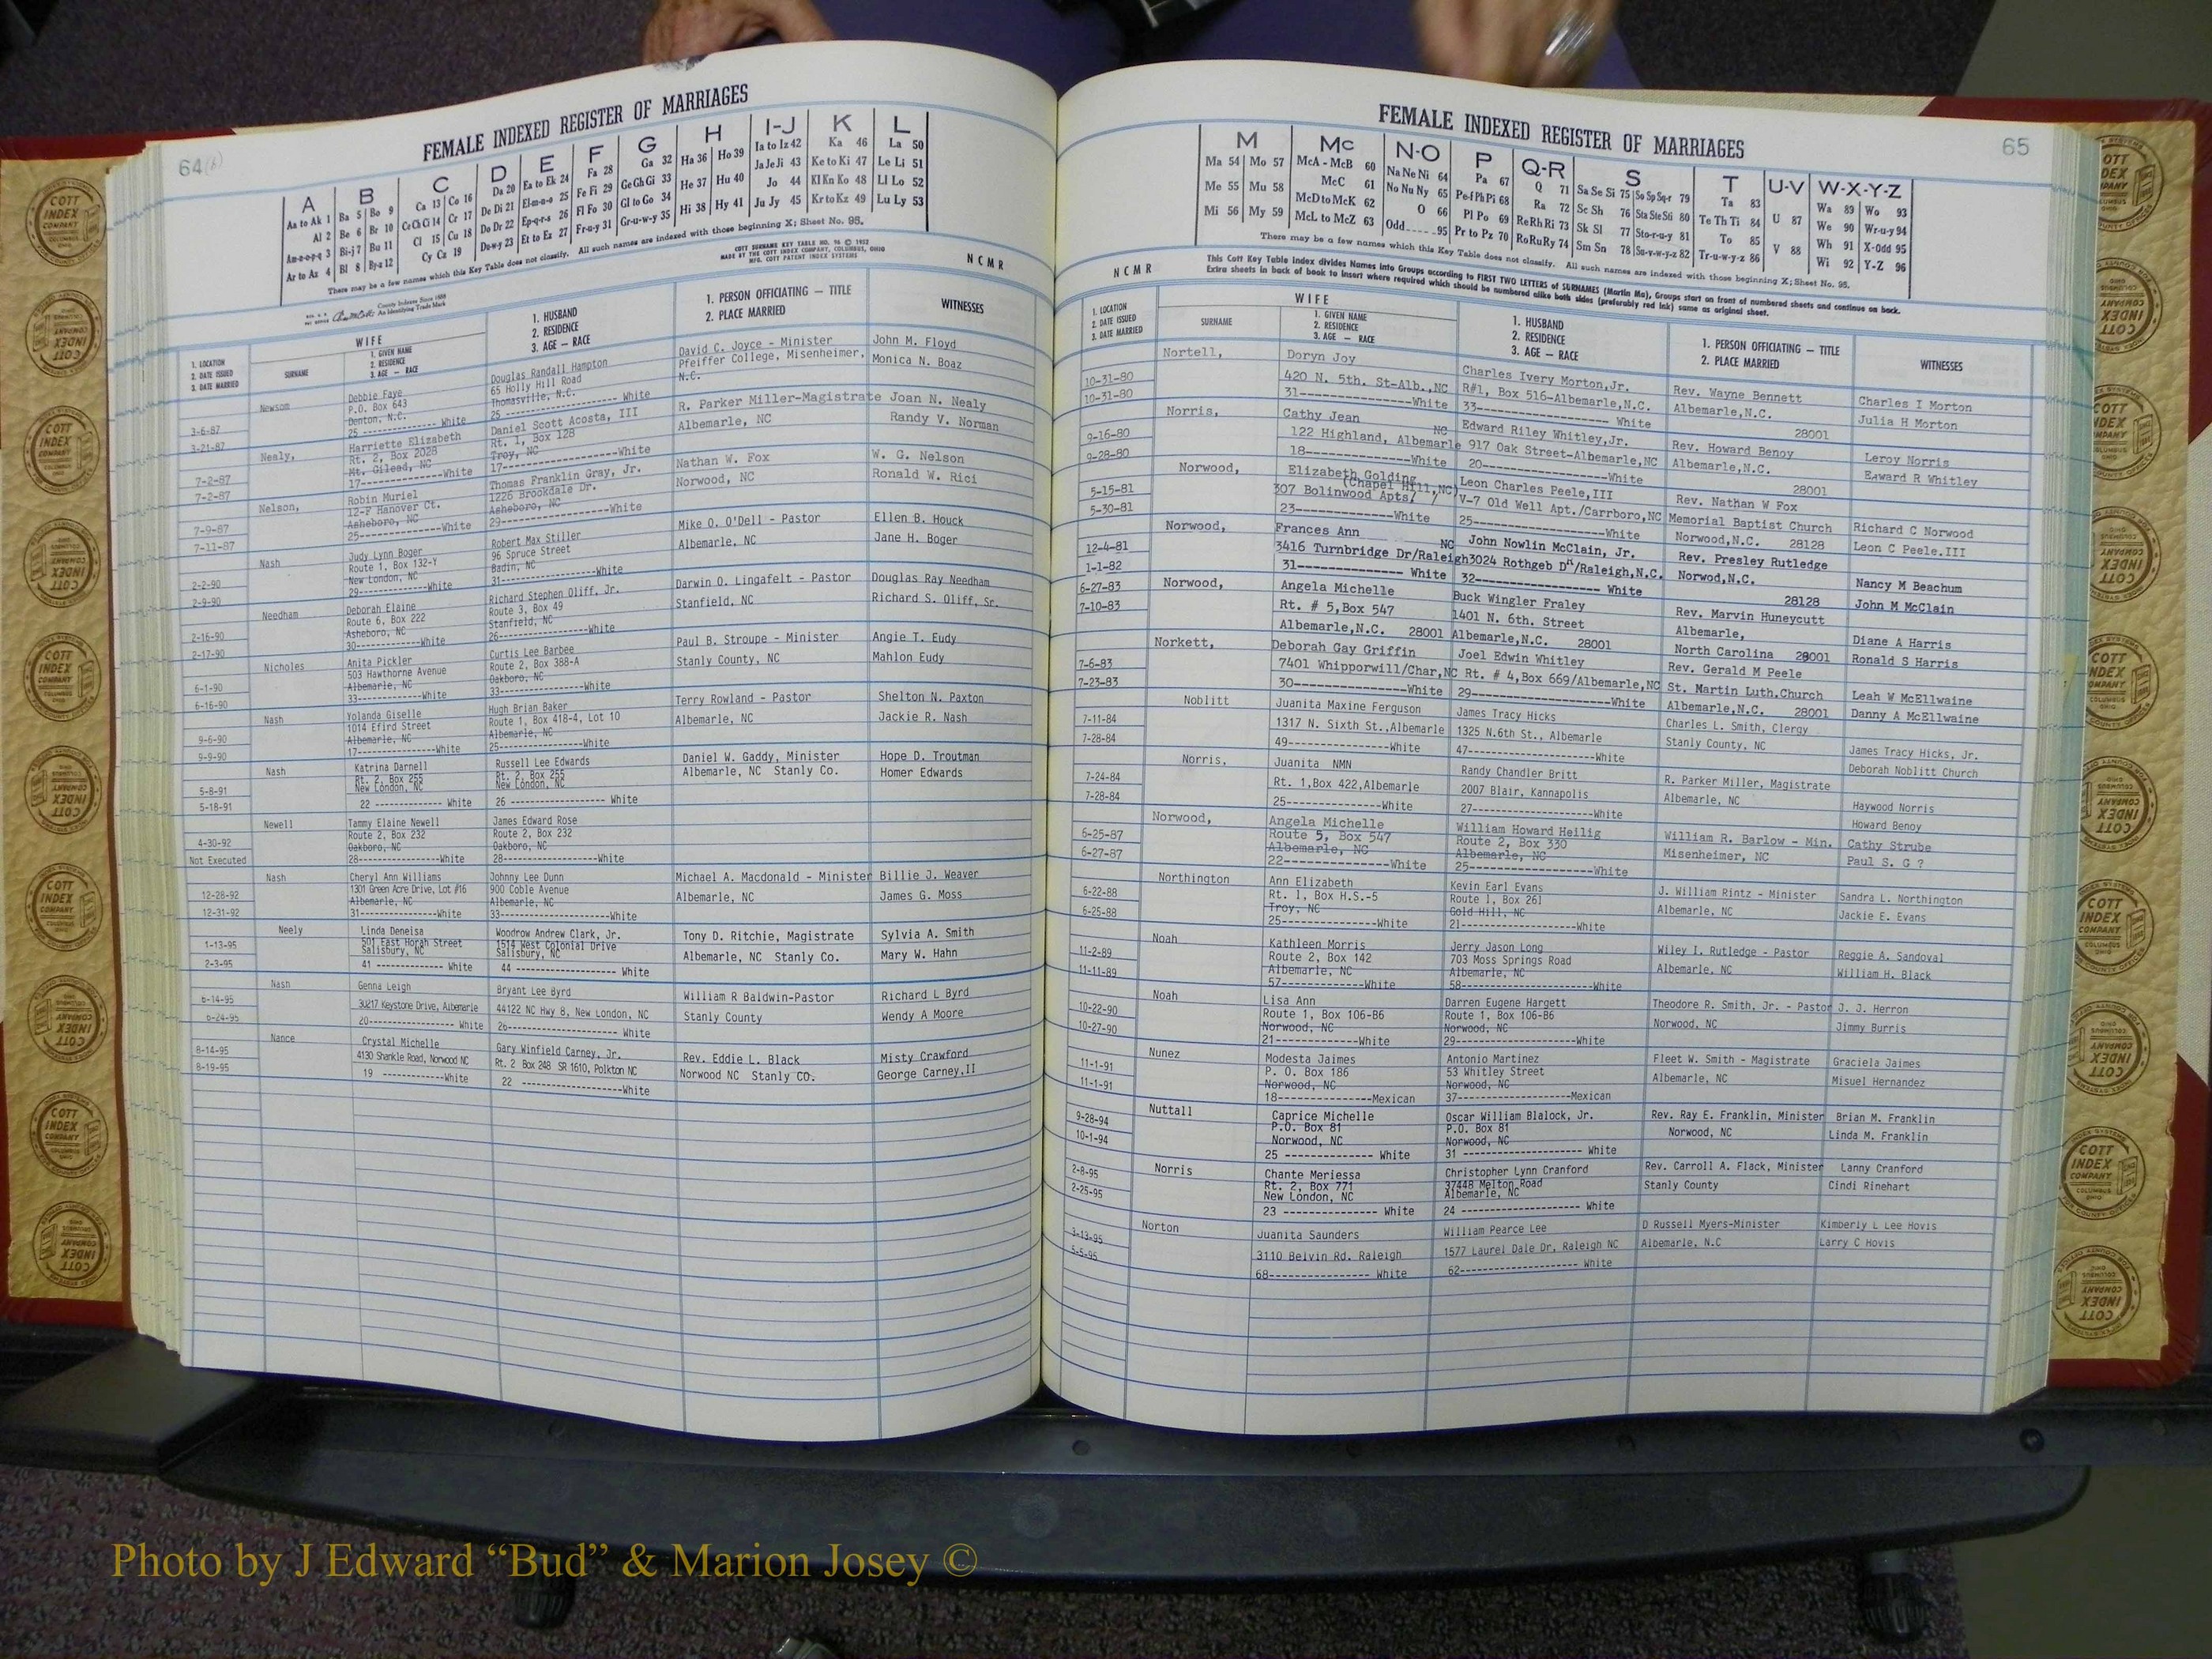 64(b)
FEMALE INDEXED REGISTER OF MARRIAGES
A B C D E F G H I-J K L
Aa to Ak 1 Ba 5 Bo 9 Ca 13 Co 16 Da 20 Ea to Ek 24 Fa 28 Ga 32 Ha 36 Ho 39 Ia to Iz 42 Ka 46 La 50
Al 2 Be 6 Br 10 Ce Ch Ci 14 Cr 17 De Di 21 El-m-n-o 25 Fe Fi 29 Ge Gh Gi 33 He 37 Hu 40 Ja Je Ji 43 Ke to Ki 47 Le Li 51
Am-n-o-p-q 3 Bi-j 7 Bu 11 Cl 15 Cu 18 Do Dr 22 Ep-q-r-s 26 Fl Fo 30 Gl to Go 34 Hi 38 Hy 41 Jo 44 Kl Kn Ko 48 Ll Lo 52
Ar to Az 4 Bl 8 By-z 12 Cy Cz 19 Du-w-y 23 Et to Ez 27 Fr-u-y 31 Gr-u-w-y 35 Ju Jy 45 Kr to Kz 49 Lu Ly 53
There may be a few names which this Key Table does not classify. All such names are indexed with those beginning X; Sheet No. 95.
COTT SURNAME KEY TABLE NO. 96 © 1952
MADE BY THE COTT INDEX COMPANY, COLUMBUS, OHIO
MFG. COTT PATENT INDEX SYSTEMS
N C M R
County Indexes Since 1888
An Identifying Trade Mark
1. LOCATION
2. DATE ISSUED
3. DATE MARRIED
WIFE
SURNAME
1. GIVEN NAME
2. RESIDENCE
3. AGE — RACE
1. HUSBAND
2. RESIDENCE
3. AGE — RACE
1. PERSON OFFICIATING — TITLE
2. PLACE MARRIED
WITNESSES
Newsom Debbie Faye Douglas Randall Hampton David C. Joyce - Minister John M. Floyd
P.O. Box 643 65 Holly Hill Road Pfeiffer College, Misenheimer, Monica N. Boaz
3-6-87 Denton, N.C. Thomasville, N.C. N.C.
3-21-87 25 ------------- White 25 ------------- White
Nealy, Harriette Elizabeth Daniel Scott Acosta, III R. Parker Miller-Magistrate Joan N. Nealy
Rt. 2, Box 202B Rt. 1, Box 128 Albemarle, NC Randy V. Norman
7-2-87 Mt. Gilead, NC Troy, NC
7-2-87 17-------------White 17-------------White
Nelson, Robin Muriel Thomas Franklin Gray, Jr. Nathan W. Fox W. G. Nelson
12-F Hanover Ct. 1226 Brookdale Dr. Norwood, NC Ronald W. Rici
7-9-87 Asheboro, NC Asheboro, NC
7-11-87 25-------------White 29-------------White
Nash Judy Lynn Boger Robert Max Stiller Mike O. O'Dell - Pastor Ellen B. Houck
Route 1, Box 132-Y 96 Spruce Street Albemarle, NC Jane H. Boger
2-2-90 New London, NC Badin, NC
2-9-90 29-------------White 31-------------White
Needham Deborah Elaine Richard Stephen Oliff, Jr. Darwin O. Lingafelt - Pastor Douglas Ray Needham
Route 6, Box 222 Route 3, Box 49 Stanfield, NC Richard S. Oliff, Sr.
2-16-90 Asheboro, NC Stanfield, NC
2-17-90 30-------------White 26-------------White
Nicholes Anita Pickler Curtis Lee Barbee Paul B. Stroupe - Minister Angie T. Eudy
503 Hawthorne Avenue Route 2, Box 388-A Stanly County, NC Mahlon Eudy
6-1-90 Albemarle, NC Oakboro, NC
6-16-90 33-------------White 33-------------White
Nash Yolanda Giselle Hugh Brian Baker Terry Rowland - Pastor Shelton N. Paxton
1014 Efird Street Route 1, Box 418-4, Lot 10 Albemarle, NC Jackie R. Nash
9-6-90 Albemarle, NC Albemarle, NC
9-9-90 17-------------White 25-------------White
Nash Katrina Darnell Russell Lee Edwards Daniel W. Gaddy, Minister Hope D. Troutman
Rt. 2, Box 255 Rt. 2, Box 255 Albemarle, NC Stanly Co. Homer Edwards
5-8-91 New London, NC New London, NC
5-18-91 22 ------------- White 26 ------------- White
Newell Tammy Elaine Newell James Edward Rose
Route 2, Box 232 Route 2, Box 232
4-30-92 Oakboro, NC Oakboro, NC
Not Executed 28-------------White 28-------------White
Nash Cheryl Ann Williams Johnny Lee Dunn Michael A. Macdonald - Minister Billie J. Weaver
12-28-92 1301 Green Acre Drive, Lot #16 900 Coble Avenue Albemarle, NC James G. Moss
Albemarle, NC Albemarle, NC
12-31-92 31-------------White 33-------------White
Neely Linda Deneisa Woodrow Andrew Clark, Jr. Tony D. Ritchie, Magistrate Sylvia A. Smith
1-13-95 501 East Horah Street 1514 West Colonial Drive Albemarle, NC Stanly Co. Mary W. Hahn
Salisbury, NC Salisbury, NC
2-3-95 41 ------------- White 44 ------------- White
Nash Genna Leigh Bryant Lee Byrd William R Baldwin-Pastor Richard L Byrd
6-14-95 30217 Keystone Drive, Albemarle 44122 NC Hwy 8, New London, NC Stanly County Wendy A Moore
6-24-95 20------------- White 26------------- White
Nance Crystal Michelle Gary Winfield Carney, Jr. Rev. Eddie L. Black Misty Crawford
8-14-95 4130 Shankle Road, Norwood NC Rt. 2 Box 248 SR 1610, Polkton NC Norwood NC Stanly CO. George Carney,II
8-19-95 19 -------------White 22 -------------White
65
FEMALE INDEXED REGISTER OF MARRIAGES
M Mc N-O P Q-R S T U-V W-X-Y-Z
Ma 54 Mo 57 McA - McB 60 Na Ne Ni 64 Pa 67 Q 71 Sa Se Si 75 So Sp Sq-r 79 Ta 83 U 87 Wa 89 Wo 93
Me 55 Mu 58 McC 61 No Nu Ny 65 Pe-f Ph Pi 68 Ra 72 Sc Sh 76 Sta Ste Sti 80 Te Th Ti 84 V 88 We 90 Wr-u-y 94
Mi 56 My 59 McD to McK 62 O 66 Pl Po 69 Re Rh Ri 73 Sk Sl 77 Sto-r-u-y 81 To 85 Wh 91 X-Odd 95
McL to McZ 63 Odd 95 Pr to Pz 70 Ro Ru Ry 74 Sm Sn 78 Su-v-w-y-z 82 Tr-u-w-y-z 86 Wi 92 Y-Z 96
There may be a few names which this Key Table does not classify. All such names are indexed with those beginning X; Sheet No. 95.
This Cott Key Table Index divides Names into Groups according to FIRST TWO LETTERS of SURNAMES (Martin Ma), Groups start on front of numbered sheets and continue on back.
Extra sheets in back of book to insert where required which should be numbered alike both sides (preferably red ink) same as original sheet.
N C M R
1. LOCATION
2. DATE ISSUED
3. DATE MARRIED
WIFE
SURNAME
1. GIVEN NAME
2. RESIDENCE
3. AGE — RACE
1. HUSBAND
2. RESIDENCE
3. AGE — RACE
1. PERSON OFFICIATING — TITLE
2. PLACE MARRIED
WITNESSES
Nortell, Doryn Joy Charles Ivery Morton,Jr. Rev. Wayne Bennett Charles I Morton
10-31-80 420 N. 5th. St-Alb.,NC R#1, Box 516-Albemarle,N.C. Albemarle,N.C. Julia H Morton
10-31-80 31-------------White 33------------- White 28001
Norris, Cathy Jean Edward Riley Whitley,Jr. Rev. Howard Benoy Leroy Norris
9-16-80 122 Highland, Albemarle NC 917 Oak Street-Albemarle,NC Albemarle,N.C. Edward R Whitley
9-28-80 18-------------White 20-------------White 28001
Norwood, Elizabeth Golding Leon Charles Peele,III Rev. Nathan W Fox Richard C Norwood
5-15-81 307 Bolinwood Apts/ (Chapel Hill,NC) V-7 Old Well Apt./Carrboro,NC Memorial Baptist Church Leon C Peele.III
5-30-81 23-------------White 25-------------White Norwood,N.C. 28128
Norwood, Frances Ann John Nowlin McClain, Jr. Rev. Presley Rutledge Nancy M Beachum
12-4-81 3416 Turnbridge Dr/Raleigh NC 3024 Rothgeb Dr/Raleigh,N.C. Norwod,N.C. John M McClain
1-1-82 31------------- White 32------------- White 28128
Norwood, Angela Michelle Buck Wingler Fraley Rev. Marvin Huneycutt Diane A Harris
6-27-83 Rt. # 5,Box 547 1401 N. 6th. Street Albemarle, Ronald S Harris
7-10-83 Albemarle,N.C. 28001 Albemarle,N.C. 28001 North Carolina 28001
Norkett, Deborah Gay Griffin Joel Edwin Whitley Rev. Gerald M Peele Leah W McEllwaine
7-6-83 7401 Whipporwill/Char,NC Rt. # 4,Box 669/Albemarle,NC St. Martin Luth.Church Danny A McEllwaine
7-23-83 30-------------White 29-------------White Albemarle,N.C. 28001
Noblitt Juanita Maxine Ferguson James Tracy Hicks Charles L. Smith, Clergy James Tracy Hicks, Jr.
7-11-84 1317 N. Sixth St.,Albemarle 1325 N.6th St., Albemarle Stanly County, NC Deborah Noblitt Church
7-28-84 49-------------White 47-------------White
Norris, Juanita NMN Randy Chandler Britt R. Parker Miller, Magistrate Haywood Norris
7-24-84 Rt. 1,Box 422,Albemarle 2007 Blair, Kannapolis Albemarle, NC Howard Benoy
7-28-84 25-------------White 27-------------White
Norwood, Angela Michelle William Howard Heilig William R. Barlow - Min. Cathy Strube
6-25-87 Route 5, Box 547 Route 2, Box 330 Misenheimer, NC Paul S. G ?
6-27-87 Albemarle, NC Albemarle, NC
22-------------White 25-------------White
Northington Ann Elizabeth Kevin Earl Evans J. William Rintz - Minister Sandra L. Northington
6-22-88 Rt. 1, Box H.S.-5 Route 1, Box 261 Albemarle, NC Jackie E. Evans
6-25-88 Troy, NC Gold Hill, NC
25-------------White 21-------------White
Noah Kathleen Morris Jerry Jason Long Wiley I. Rutledge - Pastor Reggie A. Sandoval
11-2-89 Route 2, Box 142 703 Moss Springs Road Albemarle, NC William H. Black
11-11-89 Albemarle, NC Albemarle, NC
57-------------White 58-------------White
Noah Lisa Ann Darren Eugene Hargett Theodore R. Smith, Jr. - Pastor J. J. Herron
10-22-90 Route 1, Box 106-B6 Route 1, Box 106-B6 Norwood, NC Jimmy Burris
10-27-90 Norwood, NC Norwood, NC
21-------------White 29-------------White
Nunez Modesta Jaimes Antonio Martinez Fleet W. Smith - Magistrate Graciela Jaimes
11-1-91 P. O. Box 186 53 Whitley Street Albemarle, NC Misuel Hernandez
11-1-91 Norwood, NC Norwood, NC
18-------------Mexican 37-------------Mexican
Nuttall Caprice Michelle Oscar William Blalock, Jr. Rev. Ray E. Franklin, Minister Brian M. Franklin
9-28-94 P.O. Box 81 P.O. Box 81 Norwood, NC Linda M. Franklin
10-1-94 Norwood, NC Norwood, NC
25 ------------- White 31 ------------- White
Norris Chante Meriessa Christopher Lynn Cranford Rev. Carroll A. Flack, Minister Lanny Cranford
2-8-95 Rt. 2, Box 771 37448 Melton Road Stanly County Cindi Rinehart
2-25-95 New London, NC Albemarle, NC
23 ------------- White 24 ------------- White
Norton Juanita Saunders William Pearce Lee D Russell Myers-Minister Kimberly L Lee Hovis
3-13-95 3110 Belvin Rd. Raleigh 1577 Laurel Dale Dr, Raleigh NC Albemarle, N.C Larry C Hovis
5-5-95 68------------- White 62------------- White
COTT INDEX COMPANY COLUMBUS OHIO
Photo by J Edward “Bud” & Marion Josey ©